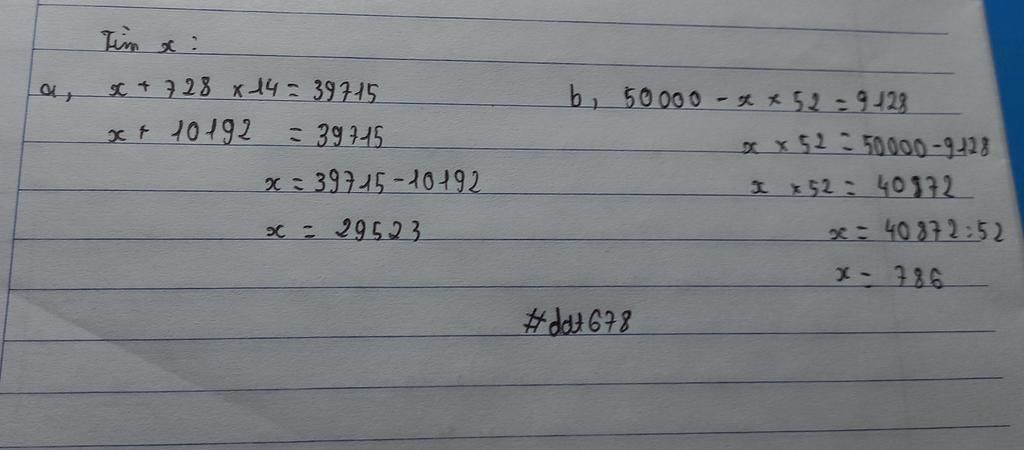 Tìm x :
a, x + 728 x 14 = 39715
x + 10192 = 39715
x = 39715 - 10192
x = 29523
b, 50000 - x x 52 = 9128
x x 52 = 50000 - 9128
x x 52 = 40872
x = 40872 : 52
x = 786
#dat678